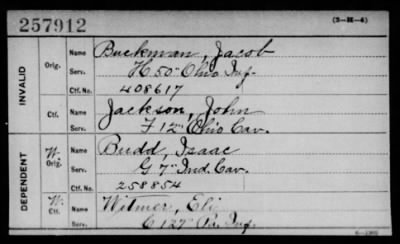 257912
(3-M-4)
INVALID
Orig.
Name Buckman, Jacob
Serv. H 50" Ohio Inf.
Ctf. No. 408617
Ctf.
Name Jackson, John
Serv. F 12" Ohio Cav.
DEPENDENT
W. Orig.
Name Budd, Isaac
Serv. G 7" Ind. Cav.
Ctf. No. 258854
W. Ctf.
Name Witmer, Eli
Serv. C 127" Pa. Inf.